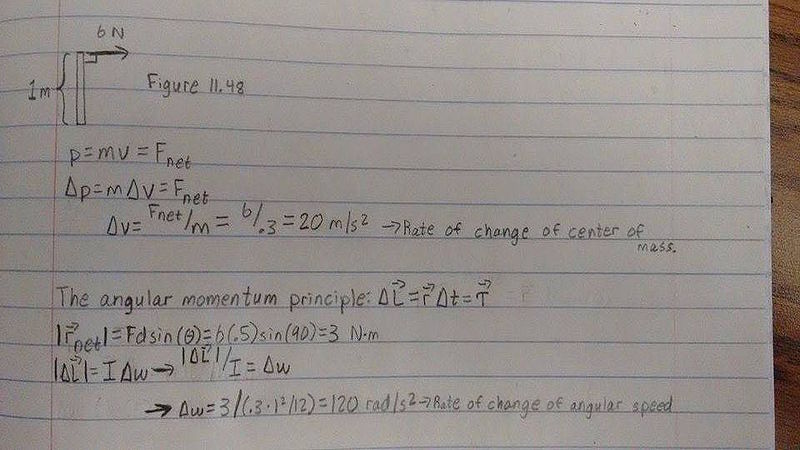 6 N
1m
Figure 11.48
p=mv=Fnet
Δp=mΔv=Fnet
Δv=Fnet/m = 6/.3 =20 m/s² →Rate of change of center of mass.
The angular momentum principle: ΔL⃗=r⃗Δt=τ⃗
|r⃗net|=Fdsin(θ)=6(.5)sin(90)=3 N·m
|ΔL⃗|=IΔw→|ΔL⃗|/I=Δw
→Δw=3/(.3·1²/12)=120 rad/s²→Rate of change of angular speed